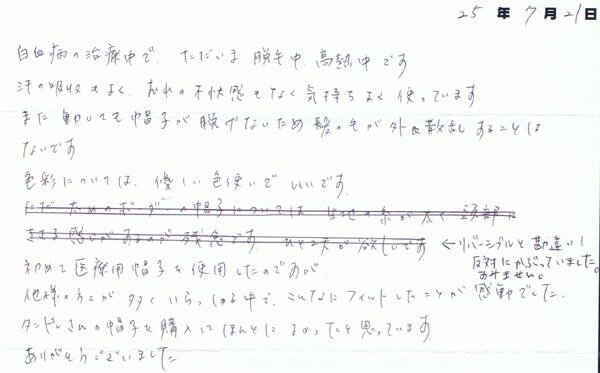 25年7月21日
白血病の治療中で、ただいま脱毛中、高熱中です
汗の吸収もよく、むれの不快感もなく気持ちよく使っています
また動いても帽子が脱げないため髪の毛が外に散乱することは
ないです
色彩については、優しい色使いでいいです。
ただ太めのボーダーの帽子については の糸が太く 頭部に
きる感じがあるのが残念です ひと工夫が欲しいです ←リバーシブルと勘違い!
反対にかぶっていました。
すみません。
初めて医療用帽子を使用したのですが
他様の方とが多くいらっしゃる中で、こんなにフィットしたことが感動でした。
さんの帽子を購入してほんとによかったと思っています
ありがとうございました